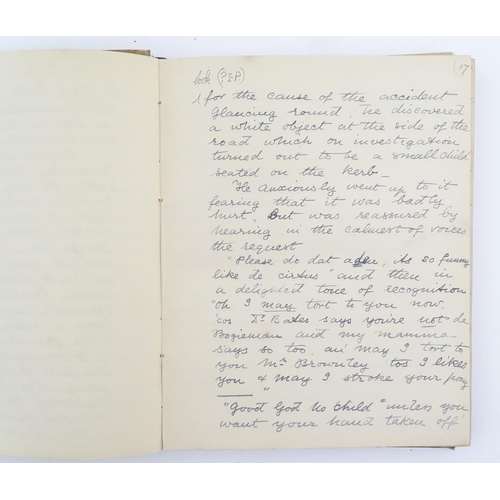 look (?S.P.) (17
for the cause of the accident
Glancing round, he discovered
a white object at the side of the
road which on investigation
turned out to be a small child
seated on the kerb—
He anxiously went up to it
fearing that it was badly
hurt, But was reassured by
hearing in the calmest of voices
the request
"Please do dat aden, its so funny
like de cirtus" and then in
a delighted tone of recognition
"oh I may tort to you now,
'cos Dr Bates says you're not de
Bogieman and my mamma
says so too, an' may I tort to
you Mr Brownley tos I likes
you & may I stroke your pony"
"Good God no child" unless you
want your hand taken off"